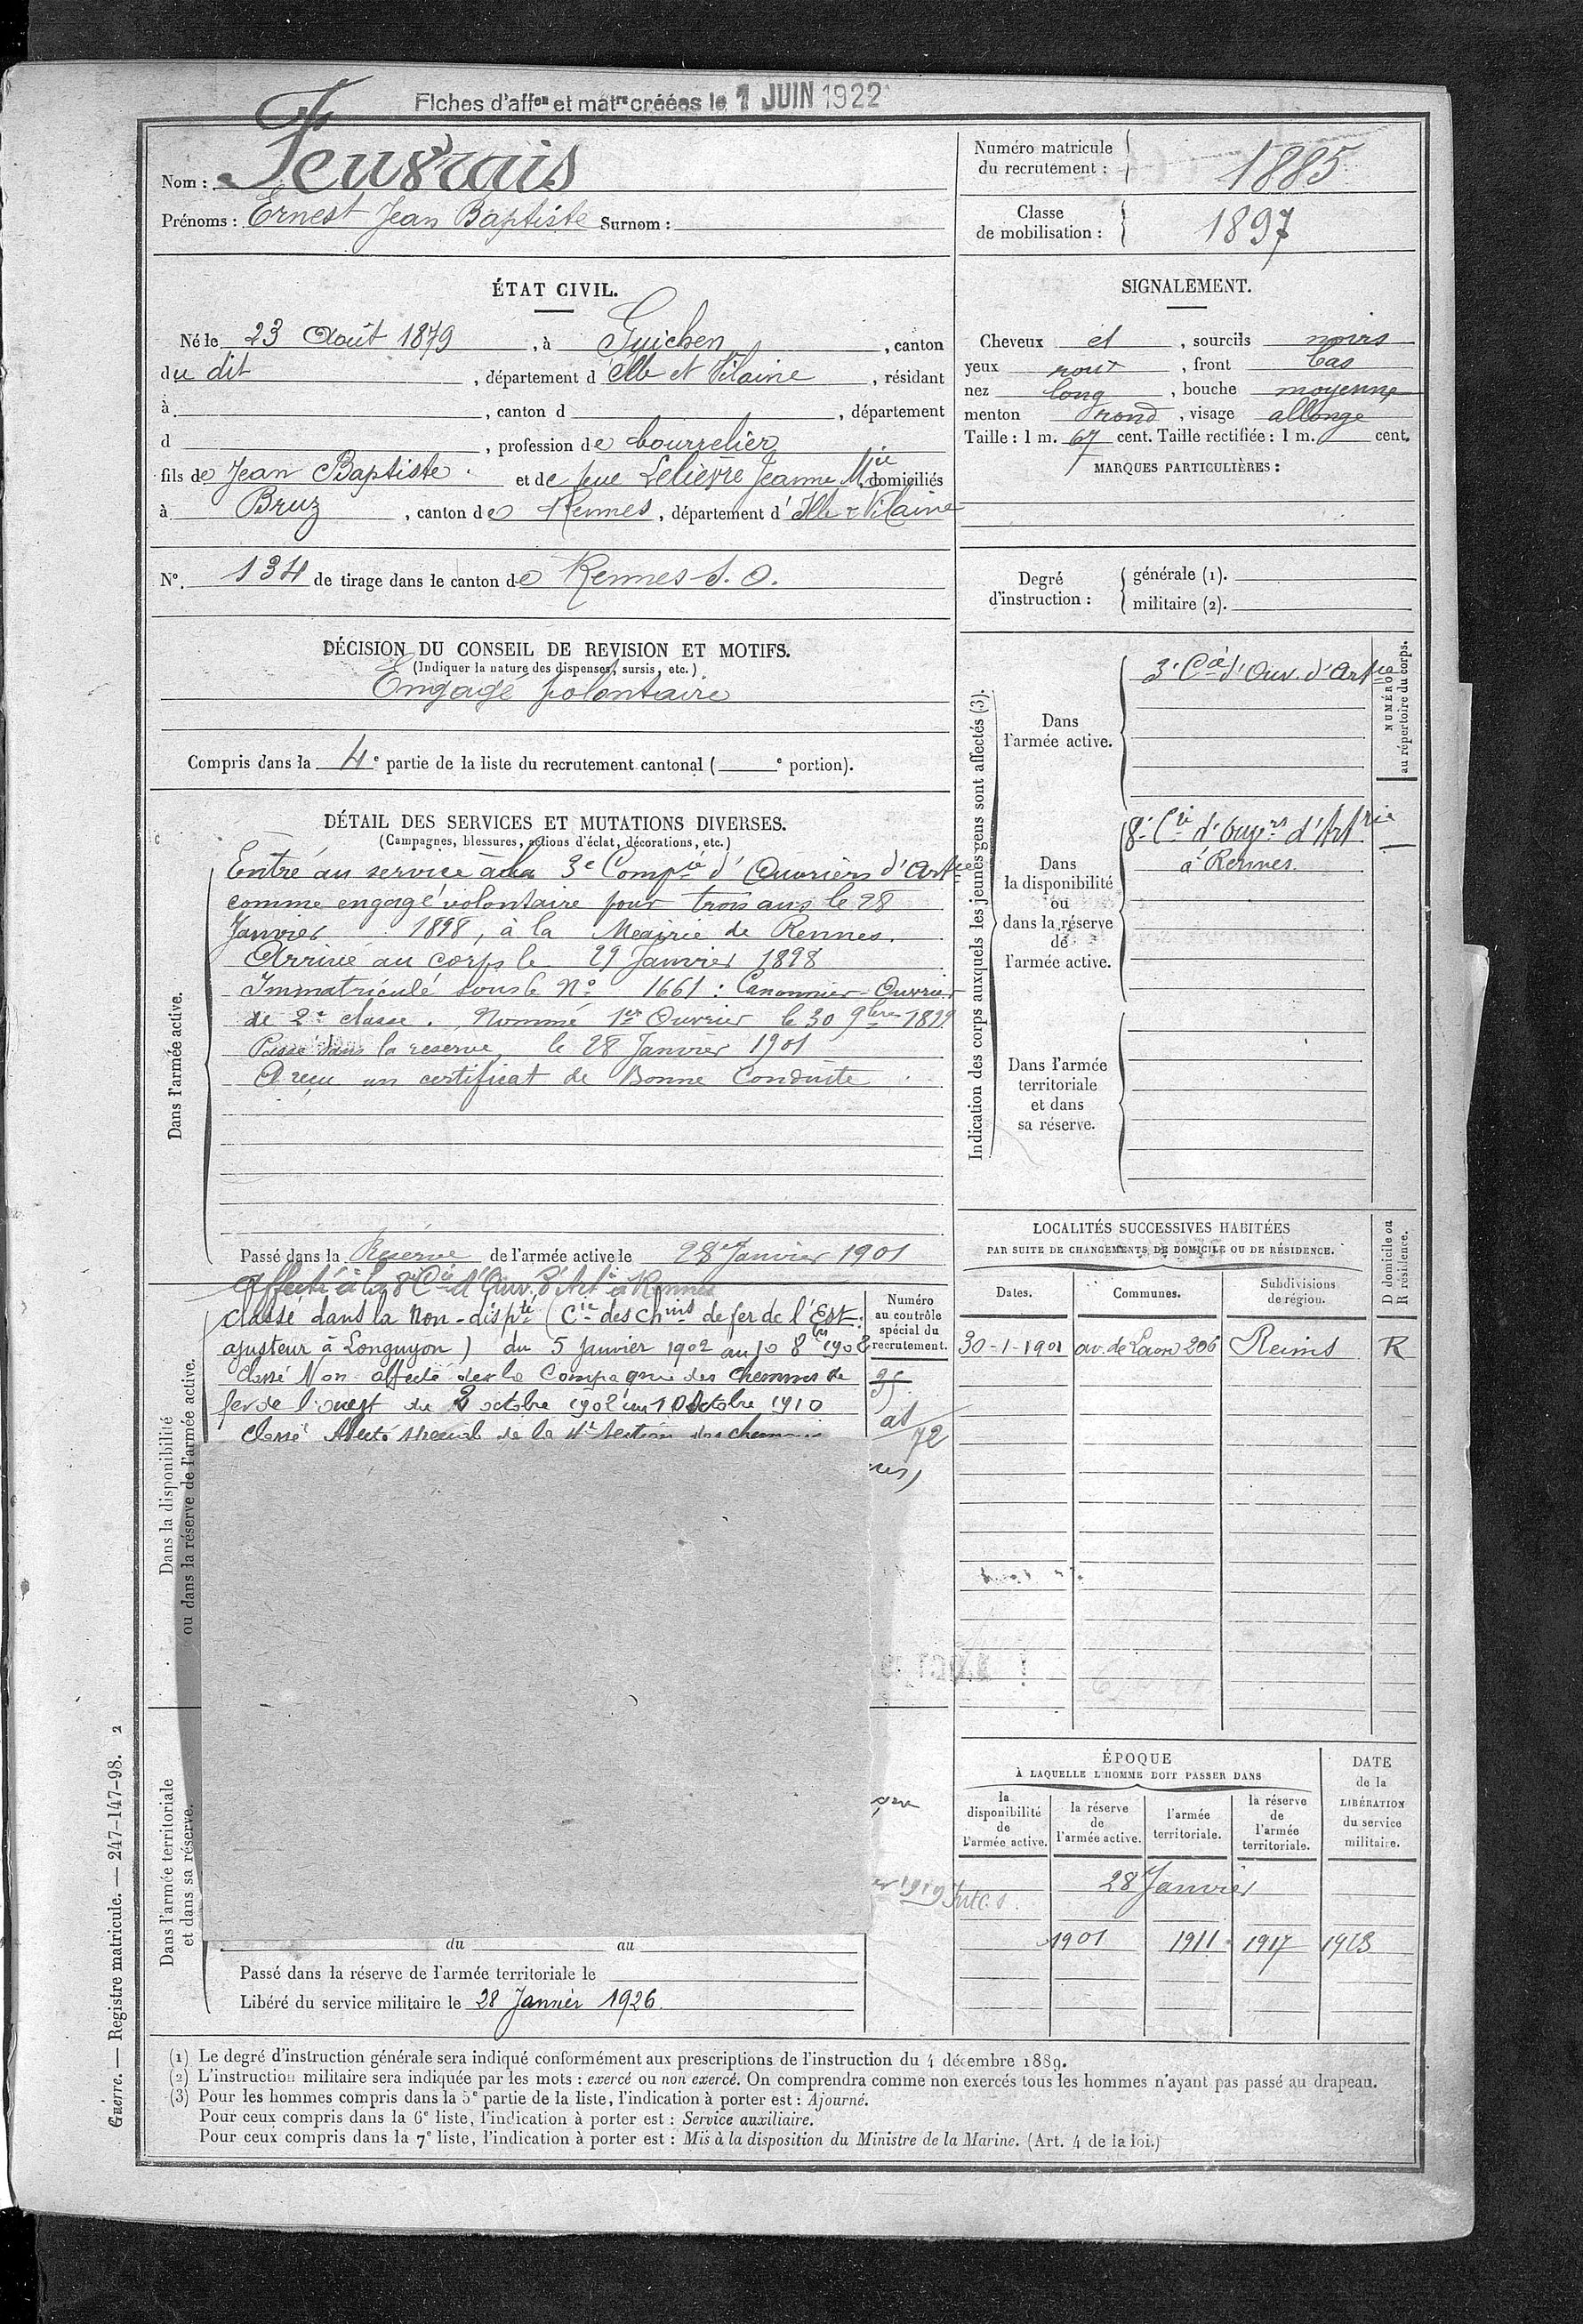 Fiches d'affon et matre créées le 1 JUIN 1922
Nom : Feuvrais
Prénoms : Ernest Jean Baptiste Surnom :
Numéro matricule du recrutement : 1885
Classe de mobilisation : 1897
ÉTAT CIVIL.
Né le 23 Août 1879, à Guichen, canton
du dit, département d'Ille et Vilaine, résidant
à , canton d , département
d , profession de bourrelier
fils de Jean Baptiste et de feue Lelièvre Jeanne Mie domiciliés
à Bruz, canton de Rennes, département d'Ille & Vilaine
N°. 134 de tirage dans le canton de Rennes S. O.
SIGNALEMENT.
Cheveux et , sourcils noirs
yeux roux , front bas
nez long , bouche moyenne
menton rond , visage allongé
Taille : 1 m. 67 cent. Taille rectifiée : 1 m. cent.
MARQUES PARTICULIÈRES :
Degré d'instruction : générale (1).
militaire (2).
DÉCISION DU CONSEIL DE REVISION ET MOTIFS.
(Indiquer la nature des dispenses, sursis, etc.)
Engagé volontaire
Compris dans la 4e partie de la liste du recrutement cantonal ( e portion).
DÉTAIL DES SERVICES ET MUTATIONS DIVERSES.
(Campagnes, blessures, actions d'éclat, décorations, etc.)
Dans l'armée active.
Entré au service à la 3e Compie d'Ouvriers d'Artie
comme engagé volontaire pour trois ans le 28
Janvier 1898, à la Mairie de Rennes.
Arrivé au corps le 29 Janvier 1898
Immatriculé sous le N° 1661 : Canonnier-Ouvrier
de 2e classe. Nommé 1er Ouvrier le 30 9bre 1899
Passé dans la réserve, le 28 Janvier 1901
A reçu un certificat de Bonne Conduite
Passé dans la Réserve de l'armée active le 28 Janvier 1901
Affecté à la 8e Cie d'Ouv. d'Art. à Rennes
Dans la disponibilité ou dans la réserve de l'armée active.
Classé dans la Non-dispté (Cie des chins de fer de l'Est.
ajusteur à Longuyon) du 5 Janvier 1902 au 8bre 1908
Classé Non affecté de la Compagnie des chemins de
fer de l'ouest du octobre 1902 au 10 Octobre 1910
Classé Affecté spécial de la 4e Section des chemins
Numéro au contrôle spécial du recrutement.
72
Dans l'armée territoriale et dans sa réserve.
du au
Passé dans la réserve de l'armée territoriale le
Libéré du service militaire le 28 Janvier 1926
Indication des corps auxquels les jeunes gens sont affectés (3).
NUMÉRO au répertoire du corps.
Dans l'armée active.
3e Cie d'Ouv. d'Artie
Dans la disponibilité ou dans la réserve de l'armée active.
8e Cie d'Ouvrs d'Artrie
à Rennes.
Dans l'armée territoriale et dans sa réserve.
LOCALITÉS SUCCESSIVES HABITÉES
PAR SUITE DE CHANGEMENTS DE DOMICILE OU DE RÉSIDENCE.
Dates. Communes. Subdivisions de région. D domicile ou R résidence.
30-1-1901 av. de Laon 206 Reims R
ÉPOQUE
À LAQUELLE L'HOMME DOIT PASSER DANS
la disponibilité de l'armée active.
la réserve de l'armée active.
l'armée territoriale.
la réserve de l'armée territoriale.
DATE de la LIBÉRATION du service militaire.
28 Janvier
1901 1911 1917 1923
(1) Le degré d'instruction générale sera indiqué conformément aux prescriptions de l'instruction du 4 décembre 1889.
(2) L'instruction militaire sera indiquée par les mots : exercé ou non exercé. On comprendra comme non exercés tous les hommes n'ayant pas passé au drapeau.
(3) Pour les hommes compris dans la 5e partie de la liste, l'indication à porter est : Ajourné.
Pour ceux compris dans la 6e liste, l'indication à porter est : Service auxiliaire.
Pour ceux compris dans la 7e liste, l'indication à porter est : Mis à la disposition du Ministre de la Marine. (Art. 4 de la loi.)
Guerre. — Registre matricule. — 247-147-98. 2